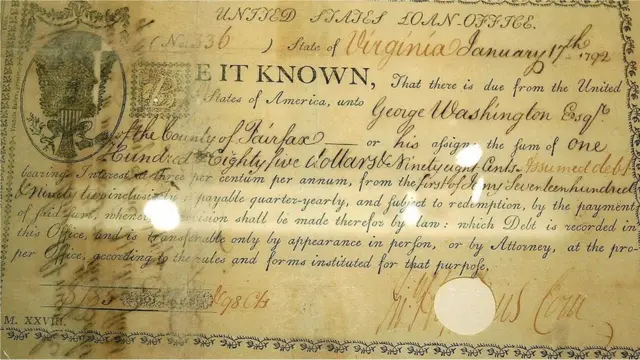 UNITED STATES LOAN-OFFICE.
(No. 336) State of Virginia January 17th 1792
BE IT KNOWN, That there is due from the United
States of America, unto George Washington Esqr.
of the County of Fairfax or his assigns, the sum of one
Hundred & Eighty five dollars & Ninety eight Cents Assumed debt
bearing Interest at three per centum per annum, from the first of Jany Seventeen hundred
& Ninety two inclusively, payable quarter-yearly, and subject to redemption, by the payment
of said sum, whenever provision shall be made therefor by law: which Debt is recorded in
this Office, and is transferable only by appearance in person, or by Attorney, at the pro-
per Office, according to the rules and forms instituted for that purpose.
98 Cts
Com
M. XXVIII.